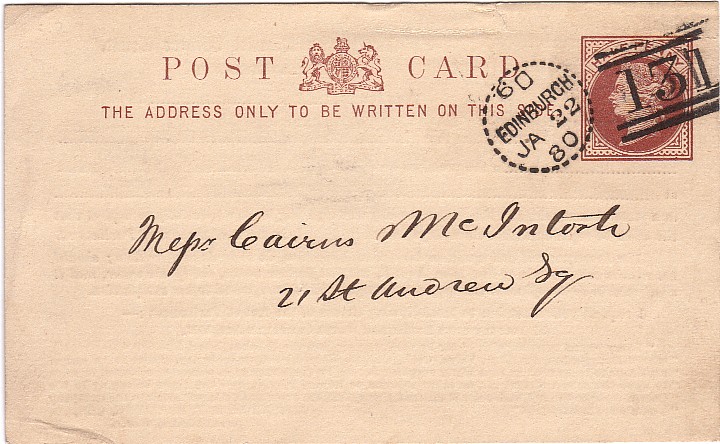 POST CARD
THE ADDRESS ONLY TO BE WRITTEN ON THIS SIDE
60
EDINBURGH
JA 22
80
131
Messrs Cairns McIntosh
21 St Andrew Sq